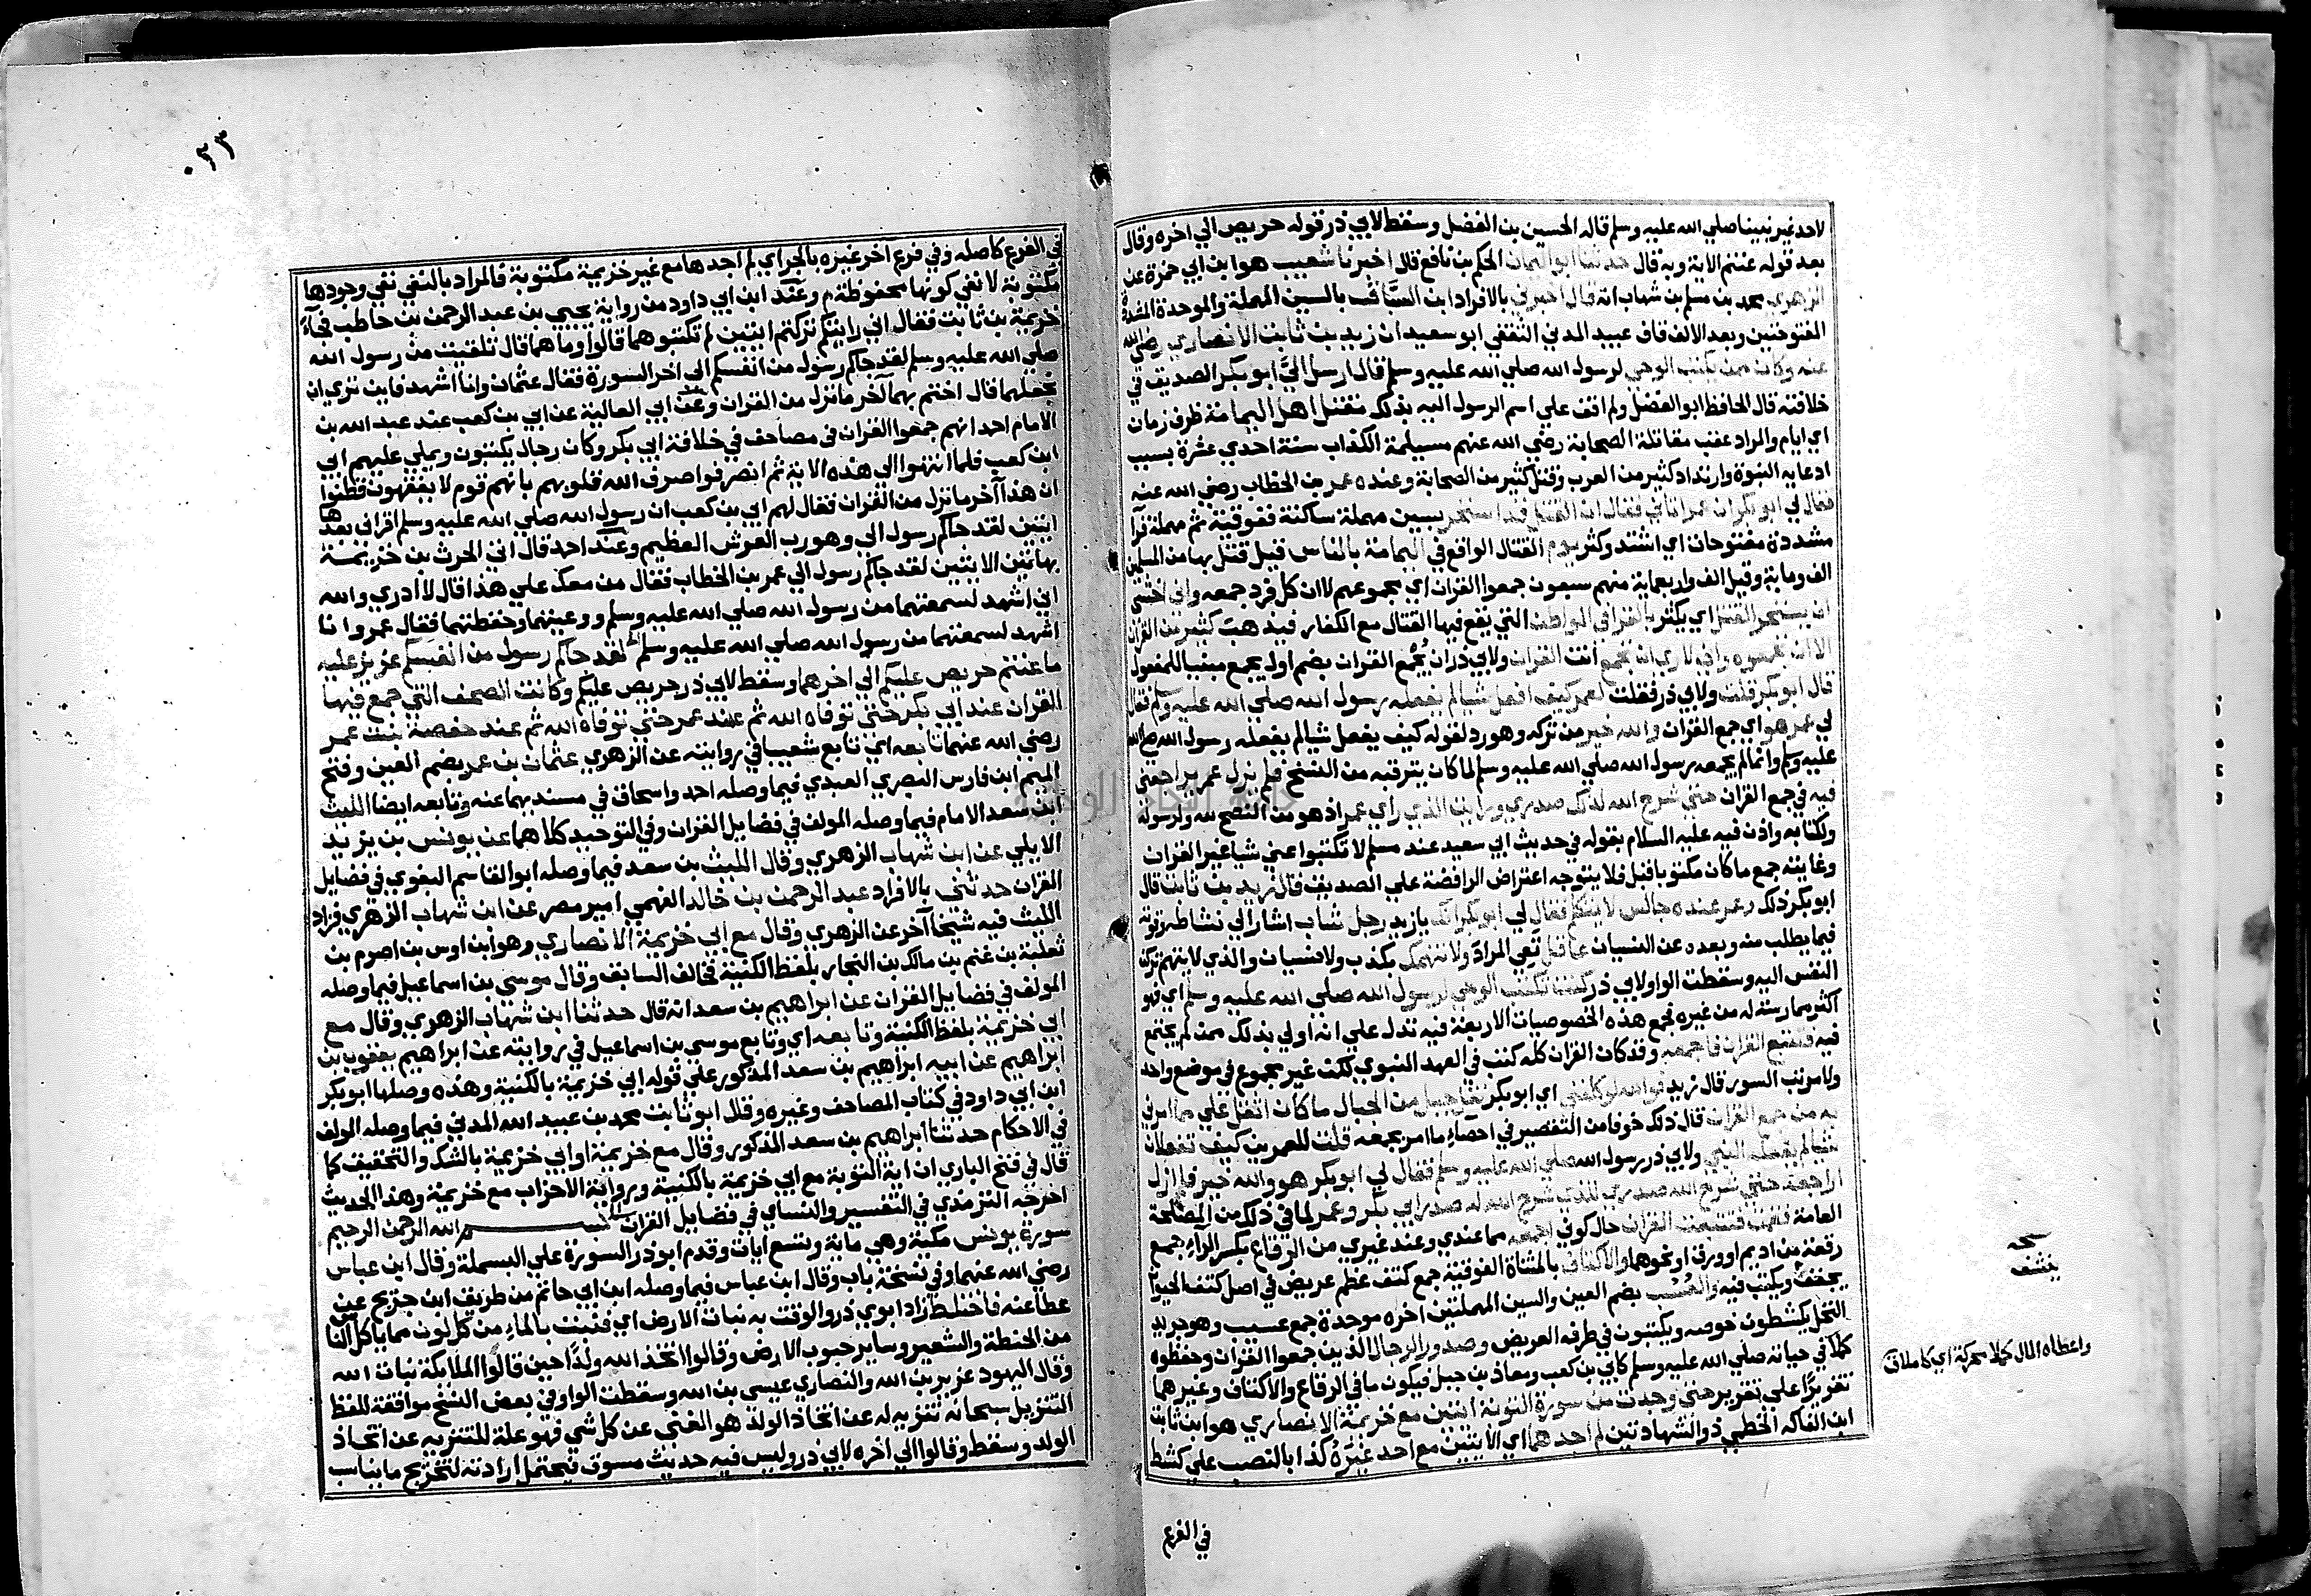 لاحد غير نبينا صلي الله عليه وسلم قاله الحسين بن الفضل وسقط لابي ذر قوله حريص الي اخره وقال
بعد قوله عنتم الاية وبه قال حدثنا ابو اليمان الحكم بن نافع قال اخبرنا شعيب هو ابن ابي حمزة عن
الزهري محمد بن مسلم بن شهاب انه قال اخبرني بالافراد ابن السَّبَّاق بالسين المهملة والموحدة المشددة
المفتوحتين وبعد الالف قاف عبيد المدني الثقفي ابو سعيد ان زيد بن ثابت الانصاري رضي الله
عنه وكان ممن يكتب الوحي لرسول الله صلي الله عليه وسلم قال ارسل اليَّ ابو بكر الصديق في
خلافته قال الحافظ ابو الفضل ولم اقف علي اسم الرسول اليه بذلك مقتل اهل اليمامة ظرف زمان
اي ايام والمراد عقب مقاتلة الصحابة رضي الله عنهم مسيلمة الكذاب سنة احدي عشرة بسبب
ادعايه النبوة وارتداد كثير من العرب وقتل كثير من الصحابة وعنده عمر بن الخطاب رضي الله عنه
فقال لي ابو بكر ان عمر اتاني فقال ان القتل قد استحر بسين مهملة ساكنة ففوقية ثم مهملة فرا
مشددة مفتوحات اي اشتد وكثر يوم القتال الواقع في اليمامة بالناس قيل قتل بها من المسلمين
الف وماية وقيل الف واربعماية منهم سبعون جمعوا القران اي مجموعهم لا ان كل فرد جمعه واني اخشي
ان يستحر القتل اي يكثر بالقرا في المواطن التي يقع فيها القتال مع الكفار فيذهب كثير من القران
الا ان تجمعوه واني لاري ان تجمع انت القران ولابي ذر ان يُجمع القران بضم اول يجمع مبنيا للمفعول
قال ابو بكر قلت ولابي ذر فقلت لعمر كيف افعل شيا لم يفعله رسول الله صلي الله عليه وسلم فقال
لي عمر هو اي جمع القران والله خير من تركه وهو رد لقوله كيف يفعل شيا لم يفعله رسول الله صلي الله
عليه وسلم وانما لم يجمعه رسول الله صلي الله عليه وسلم لما كان يترقبه من النسخ فلم يزل عمر يراجعني
فيه في جمع القران حتي شرح الله لذلك صدري ورايت الذي راي عمر اذ هو من النصح لله ولرسوله
ولكتابه واذن فيه عليه السلام بقوله في حديث ابي سعيد عند مسلم لا تكتبوا عني شيا غير القران
وغايته جمع ما كان مكتوبا قبل فلا يتوجه اعتراض الرافضة علي الصديق قال زيد بن ثابت قال
ابو بكر ذلك وعمر عنده جالس لا يتكلم فقال لي ابو بكر انك يا زيد رجل شاب اشار الي نشاطه وقوته
فيما يطلب منه وبعده عن النسيان عاقل تعي المراد ولا نتهمك بكذب ولا نسيان والذي لا يتهم تركن
النفس اليه وسقطت الواو لابي ذر كنت تكتب الوحي لرسول الله صلي الله عليه وسلم اي فهو
اكثر ممارسة له من غيره فجمع هذه الخصوصيات الاربعة فيه تدل علي انه اولي بذلك ممن لم يجتمع
فيه فتتبع القران فاجمعه وقد كان القران كله كتب في العهد النبوي لكن غير مجموع في موضع واحد
ولا مرتب السور قال زيد فوالله لو كلفني اي ابو بكر نقل جبل من الجبال ما كان اثقل علي مما امرني
به من جمع القران قال ذلك خوفا من التقصير في احصاء ما امر بجمعه قلت للعمرين كيف تفعلان
شيا لم يفعله النبي ولابي ذر رسول الله صلي الله عليه وسلم فقال لي ابو بكر هو والله خير فلم ازل
اراجعه حتي شرح الله صدري للذي شرح الله له صدر ابي بكر وعمر لما في ذلك من المصلحة
العامة فقمت فتتبعت القران حال كوني اجمعه مما عندي وعند غيري من الرقاع بكسر الراء جمع
رقعة من اديم او ورق او نحوهما والاكتاف بالمثناة الفوقية جمع كتف عظم عريض في اصل كتف الحيوان
يجفف ويكتب فيه والعُسُب بضم العين والسين المهملتين اخره موحدة جمع عسيب وهو جريد
النخل يكشطون خوصه ويكتبون في طرفه العريض وصدور الرجال الذين جمعوا القران وحفظوه
كملا في حياته صلي الله عليه وسلم كابي بن كعب ومعاذ بن جبل فيكون ما في الرقاع والاكتاف وغيرهما
تقريرًا علي تقرير حتي وجدت من سورة التوبة ايتين مع خزيمة الانصاري هو ابن ثابت
ابن الفاكه الخطمي ذو الشهادتين لم اجدهما اي الايتين مع احد غيرَهُ كذا بالنصب علي كشط
في الفرع
واعطاه المال كملا محركة اي كاملا ق
٠٢٣٣
في الفرع كاصله وفي فرع اخر غيره بالجر اي لم اجدها مع غير خزيمة مكتوبة فالمراد بالنفي نفي وجودها
مكتوبة لا نفي كونها محفوظة وعند ابن ابي داود من رواية يحيي بن عبد الرحمن بن حاطب فجاء
خزيمة بن ثابت فقال اني رايتكم تركتم ايتين لم تكتبوهما قالوا وما هما قال تلقيت من رسول الله
صلي الله عليه وسلم لقد جاكم رسول من انفسكم الي اخر السورة فقال عثمان وانا اشهد فاين تري ان
نجعلهما قال اختم بهما آخر ما نزل من القران وعن ابي العالية عن ابي بن كعب عند عبد الله بن
الامام احد انهم جمعوا القران في مصاحف في خلافة ابي بكر وكان رجال يكتبون ويملي عليهم ابي
ابن كعب فلما انتهوا الي هذه الاية ثم انصرفوا صرف الله قلوبهم بانهم قوم لا يفقهون فظنوا
ان هذا آخر ما نزل من القران فقال لهم ابي بن كعب ان رسول الله صلي الله عليه وسلم اقراني بعدها
ايتين لقد جاكم رسول الي وهو رب العرش العظيم وعند احد قال اتي الحرث بن خزيمة
بهاتين الايتين لقد جاكم رسول الي عمر بن الخطاب فقال من معك علي هذا قال لا ادري والله
اني اشهد لسمعتهما من رسول الله صلي الله عليه وسلم ووعيتهما وحفظتهما فقال عمر وانا
اشهد لسمعتهما من رسول الله صلي الله عليه وسلم لقد جاكم رسول من انفسكم عزيز عليه
ما عنتم حريص عليكم الي اخرهما وسقط لابي ذر حريص عليكم وكانت الصحف التي جمع فيها
القران عند ابي بكر حتي توفاه الله ثم عند عمر حتي توفاه الله ثم عند حفصة بنت عمر
رضي الله عنهما تابعه اي تابع شعيبا في روايته عن الزهري عثمان بن عمر بضم العين وفتح
الميم ابن فارس البصري العبدي فيما وصله احد واسحاق في مسنديهما عنه وتابعه ايضا الليث
ابن سعد الامام فيما وصله المولف في فضايل القران وفي التوحيد كلاهما عن يونس بن يزيد
الايلي عن ابن شهاب الزهري وقال الليث بن سعد فيما وصله ابو القاسم البغوي في فضايل
القران حدثني بالافراد عبد الرحمن بن خالد الفهمي امير مصر عن ابن شهاب الزهري فزاد
الليث فيه شيخا آخر عن الزهري وقال مع ابي خزيمة الانصاري وهو ابن اوس بن اصرم بن
ثعلبة بن غنم بن مالك بن النجار بلفظ الكنية فخالف السابق وقال موسي بن اسماعيل فيما وصله
المولف في فضايل القران عن ابراهيم بن سعد انه قال حدثنا ابن شهاب الزهري وقال مع
ابي خزيمة بلفظ الكنية وتابعه اي وتابع موسي بن اسماعيل في روايته عن ابراهيم يعقوب بن
ابراهيم عن ابيه ابراهيم بن سعد المذكور علي قوله ابي خزيمة بالكنية وهذه وصلها ابو بكر
ابن ابي داود في كتاب المصاحف وغيره وقال ابو ثابت محمد بن عبيد الله المدني فيما وصله المولف
في الاحكام حدثنا ابراهيم بن سعد المذكور وقال مع خزيمة او ابي خزيمة بالشك والتحقيق كما
قال في فتح الباري ان اية التوبة مع ابي خزيمة بالكنية وبرواية الاحزاب مع خزيمة وهذا الحديث
اخرجه الترمذي في التفسير والنساي في فضايل القران بسم الله الرحمن الرحيم
سورة يونس مكية وهي ماية وتسع ايات وقدم ابو ذر السورة علي البسملة وقال ابن عباس
رضي الله عنهما وفي نسخة باب وقال ابن عباس فيما وصله ابن ابي حاتم من طريق ابن جريج عن
عطا عنه فاختلط زاد ابوي ذر والوقت به نبات الارض اي فنبت بالماء من كل لون مما ياكل الناس
من الحنطة والشعير وساير حبوب الارض وقالوا اتخذ الله ولدًا حين قالوا الملايكة بنات الله
وقال اليهود عزير بن الله والنصاري عيسي بن الله وسقطت الواو في بعض النسخ موافقة للفظ
التنزيل سبحانه تنزيه له عن اتخاذ الولد هو الغني عن كل شي فهو علة للتنزيه عن اتخاذ
الولد وسقط وقالوا الي اخره لابي ذر وليس فيه حديث مسوق فيحتمل ارادته لتخريج ما يناسب